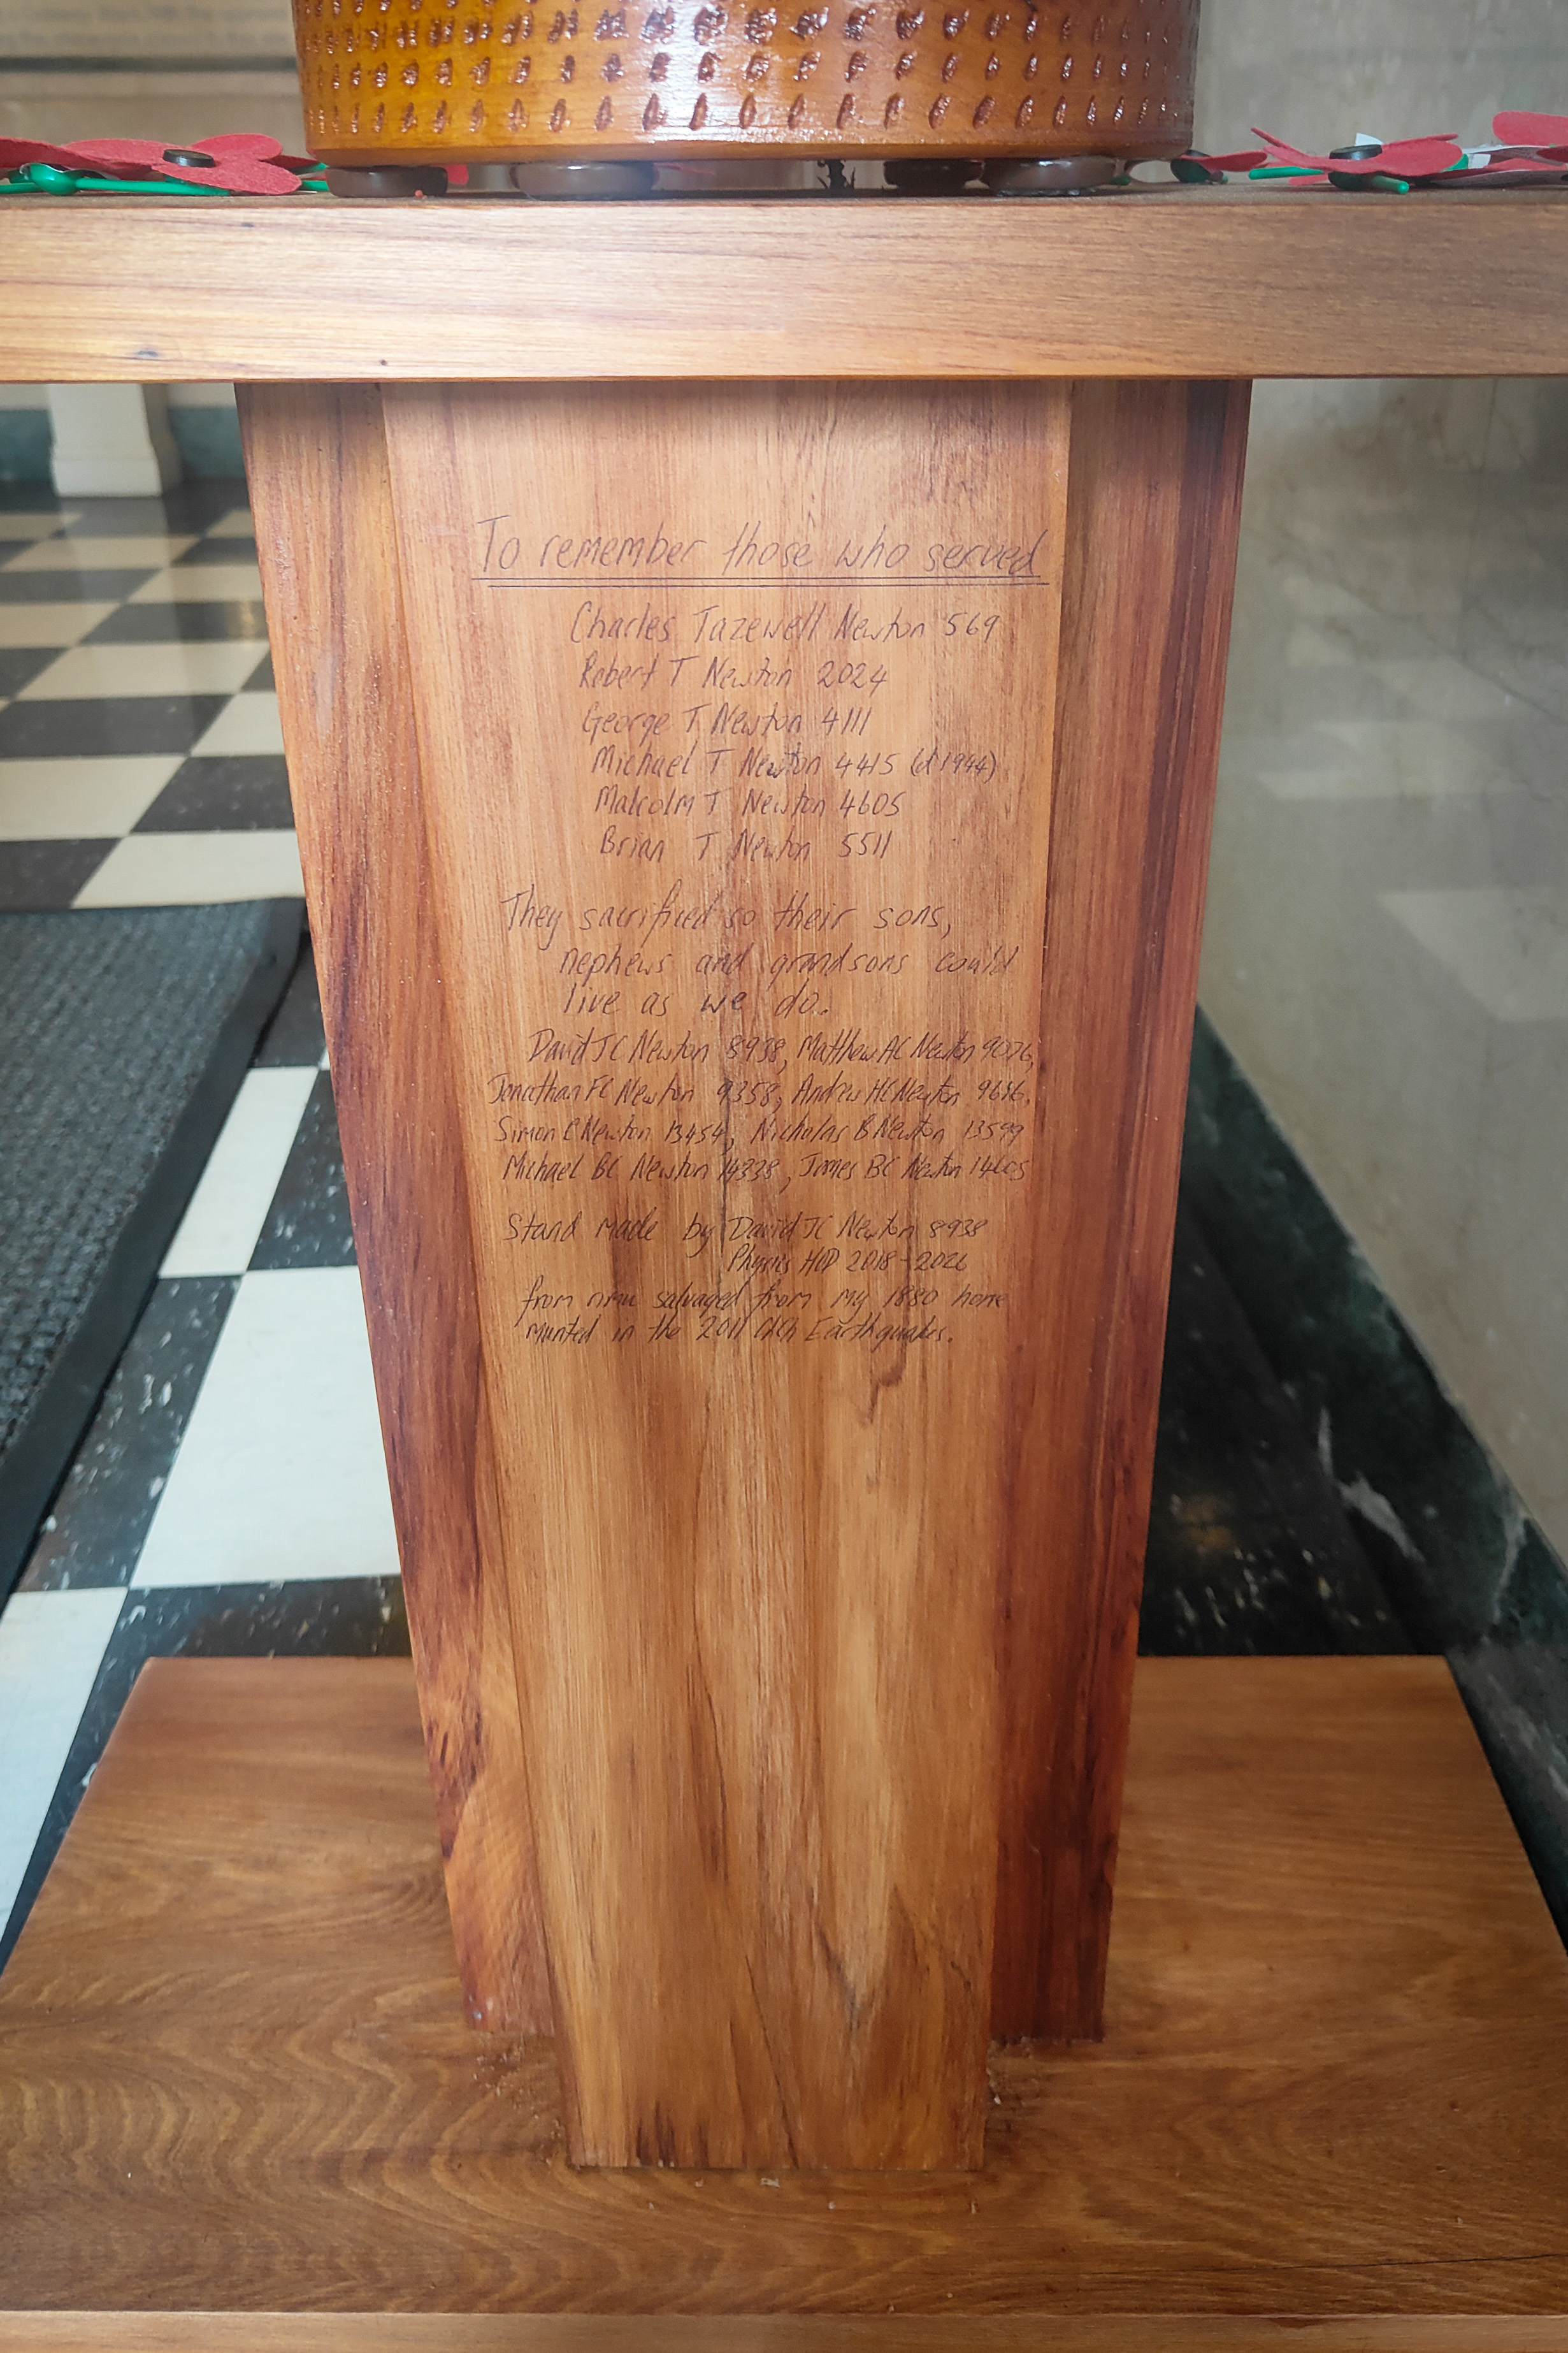 To remember those who served
Charles Tazewell Newton 569
Robert T Newton 2024
George T Newton 4111
Michael T Newton 4415 (d 1944)
Malcolm T Newton 4605
Brian T Newton 5511
They sacrificed so their sons,
nephews and grandsons could
live as we do.
David JC Newton 8938, Matthew AC Newton 9076,
Jonathan FC Newton 9358, Andrew HC Newton
Simon C Newton 13454, Nicholas B Newton 13599
Michael BC Newton 14338, James BC Newton 14605
Stand made by David JC Newton 8938
Physics HOD 2018-2026
from rimu salvaged from my 1880 home
munted in the 2011 ChCh Earthquakes.